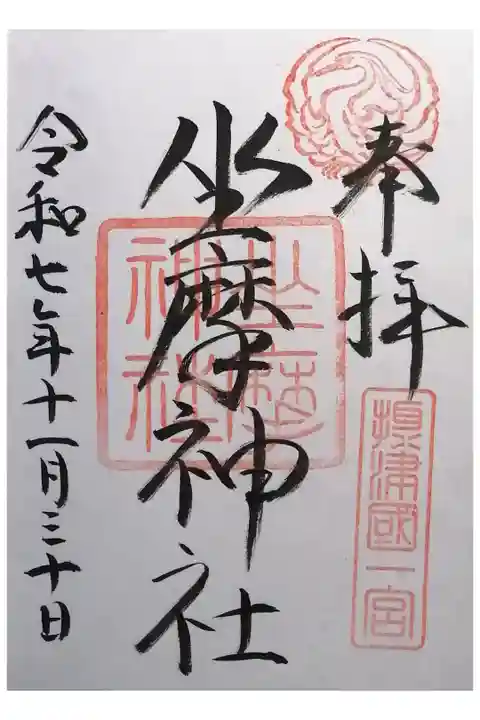 奉拝
摂津國一宮
坐摩神社
坐摩神社
令和七年十一月三十日